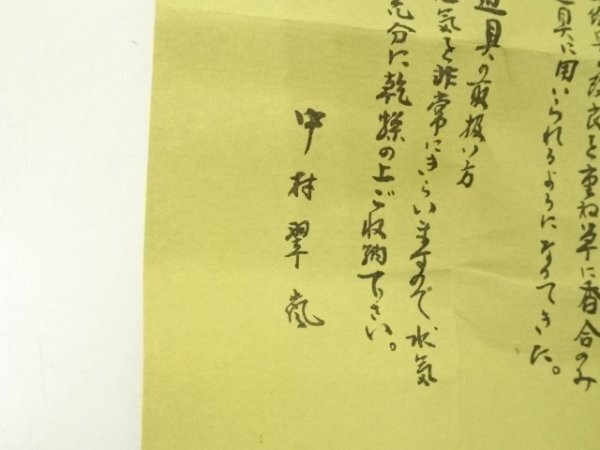 の改良を重ね単に香合のみ
道具に用いられるようになってきた。
道具の取扱い方
気を非常にきらいますので水気
充分に乾燥の上ご収納下さい。
中村翠嵐